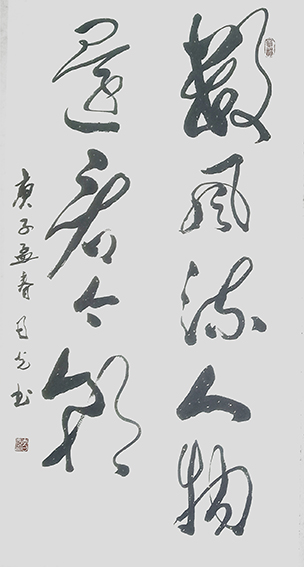 數風流人物
還看今朝
庚子孟春
書